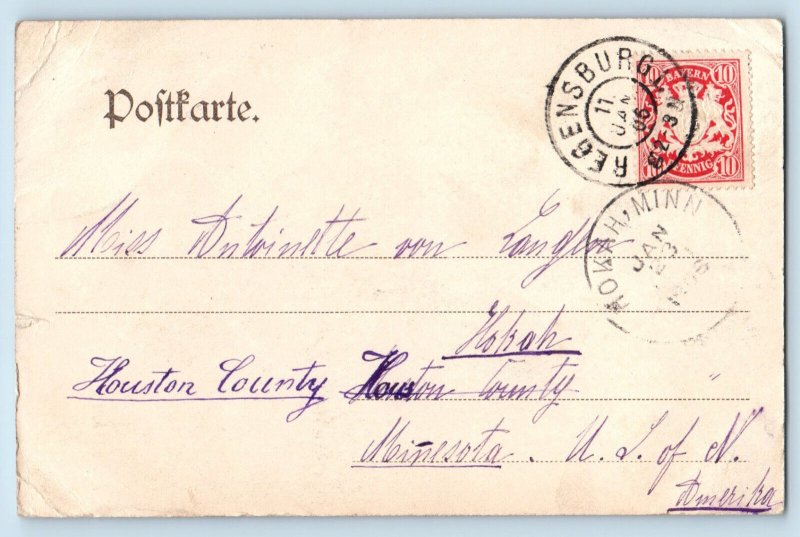 Postkarte.
REGENSBURG
11
JAN
06
2-3
10 BAYERN 10
10 PFENNIG 10
HOKAH, MINN
JAN
Miss Antoinette von
Hokah
Houston County Houston County "
Minesota. U. S. of N.
Amerika